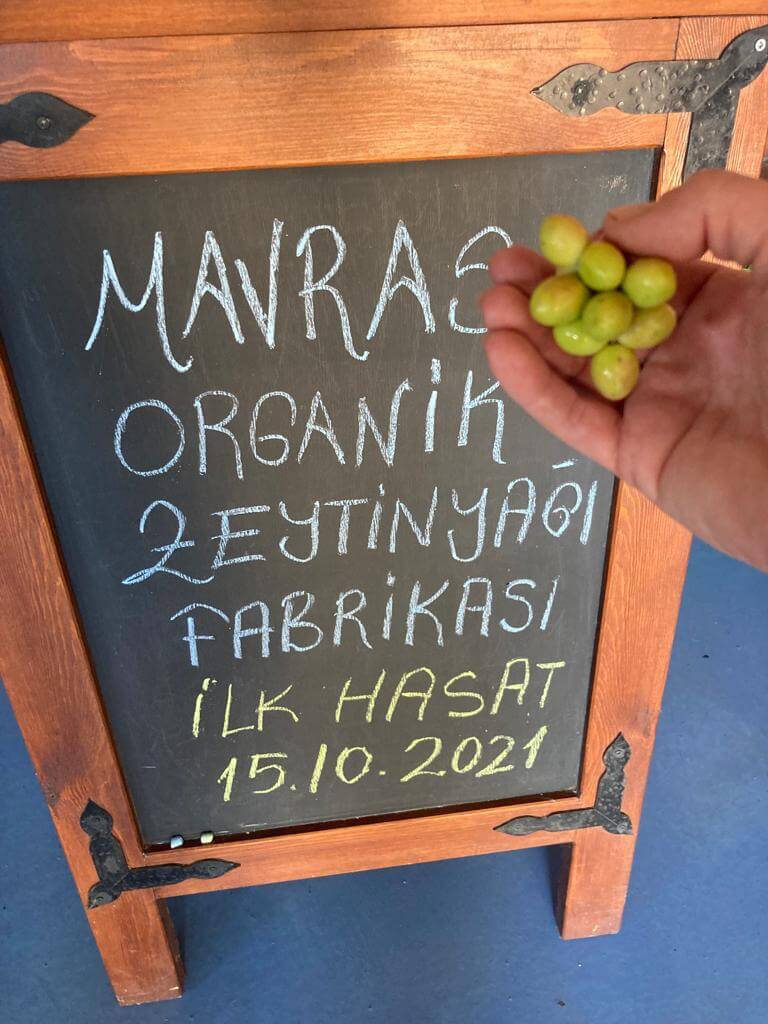 MAVRAS
ORGANİK
ZEYTİNYAĞI
FABRİKASI
İLK HASAT
15.10.2021